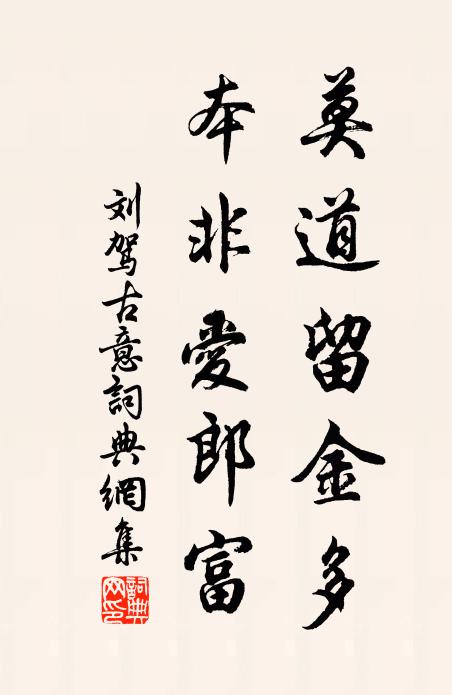 莫道留金多
本非愛郎富
刘駕古意詞典網集
詞典網印